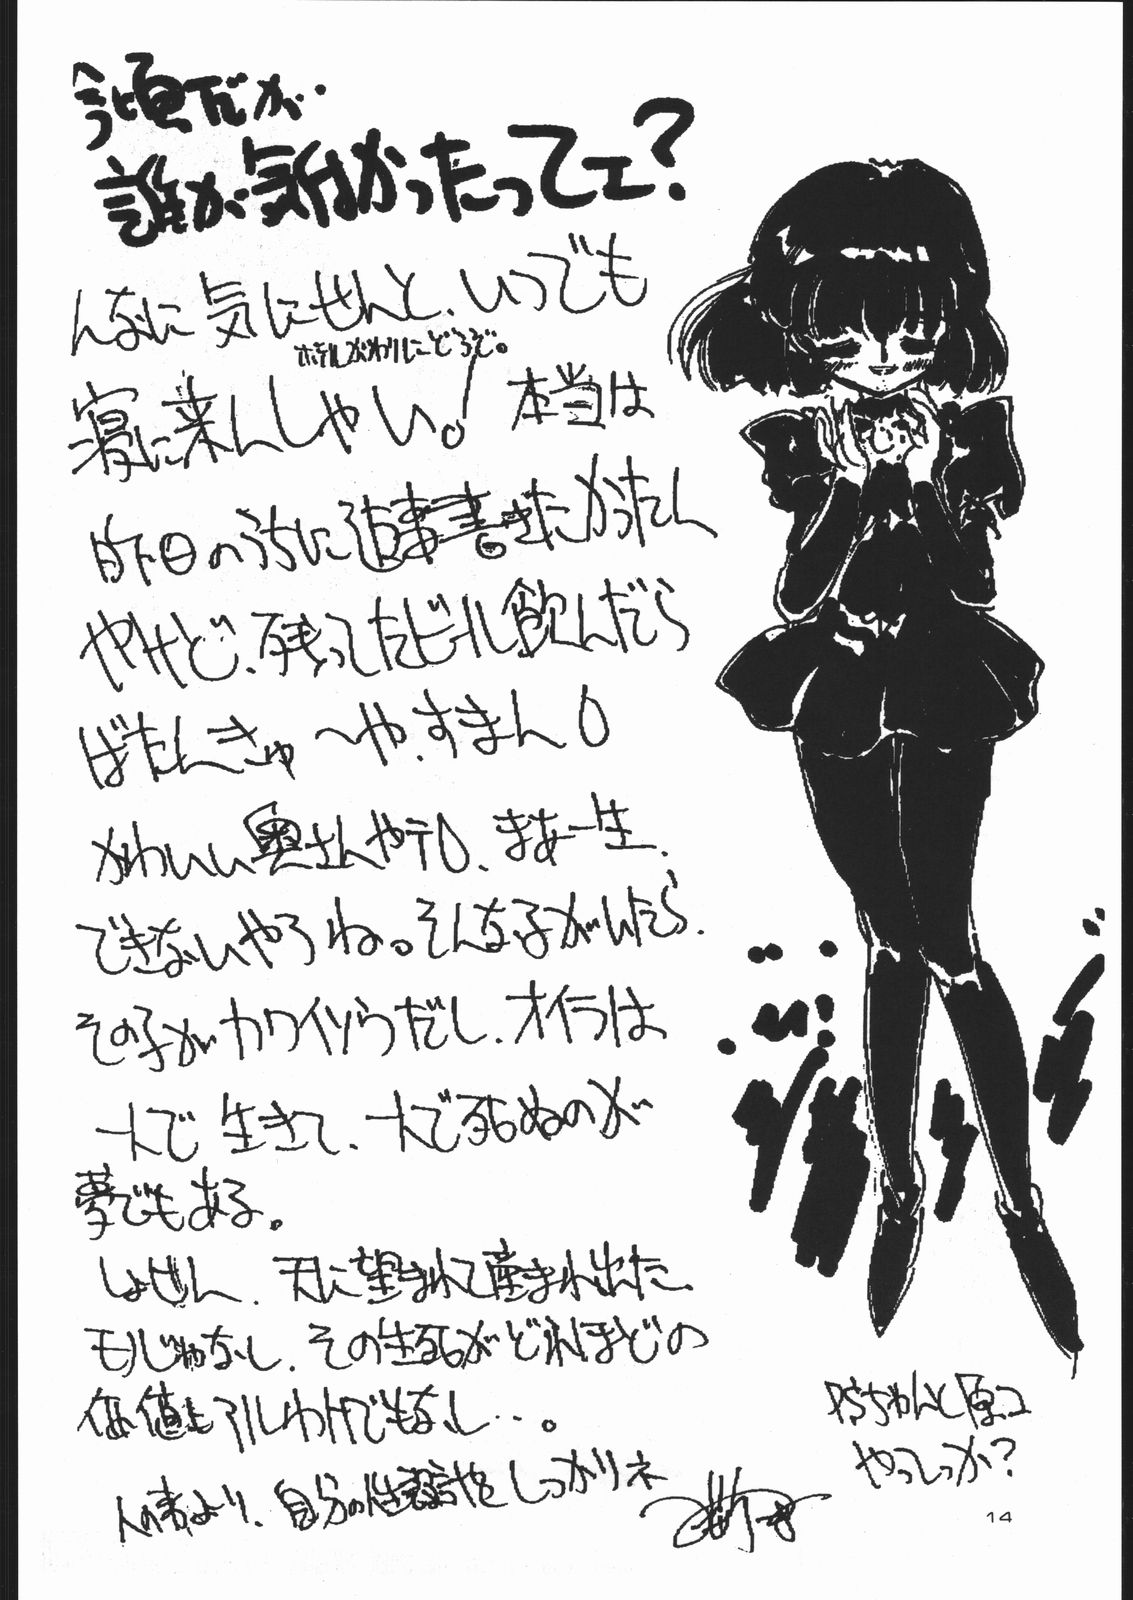 今頃だが‥
誰が気付かったってェ?
んなに気にせんと、いつでも
ホテルがわりにどうぞ。
寝に来んしゃい。! 本当は
昨日のうちに返事書きたかったん
やけど、残ってたビール飲んだら
ばたんきゅ〜や、すまん
かわいい奥さんや子、まあ一生、
できないやろね。そんな子がいたら、
その子がカワイソうだし、オイラは
一人で生きて、一人で死ぬのが
夢でもある。
しょせん、天に望まれて産まれ出た
モノじゃなし、その生死がどれほどの
価値もアルわけでもなし…。
人の事より、自分の生をしっかりネ
PSちゃんと原コ
やってっか?
14